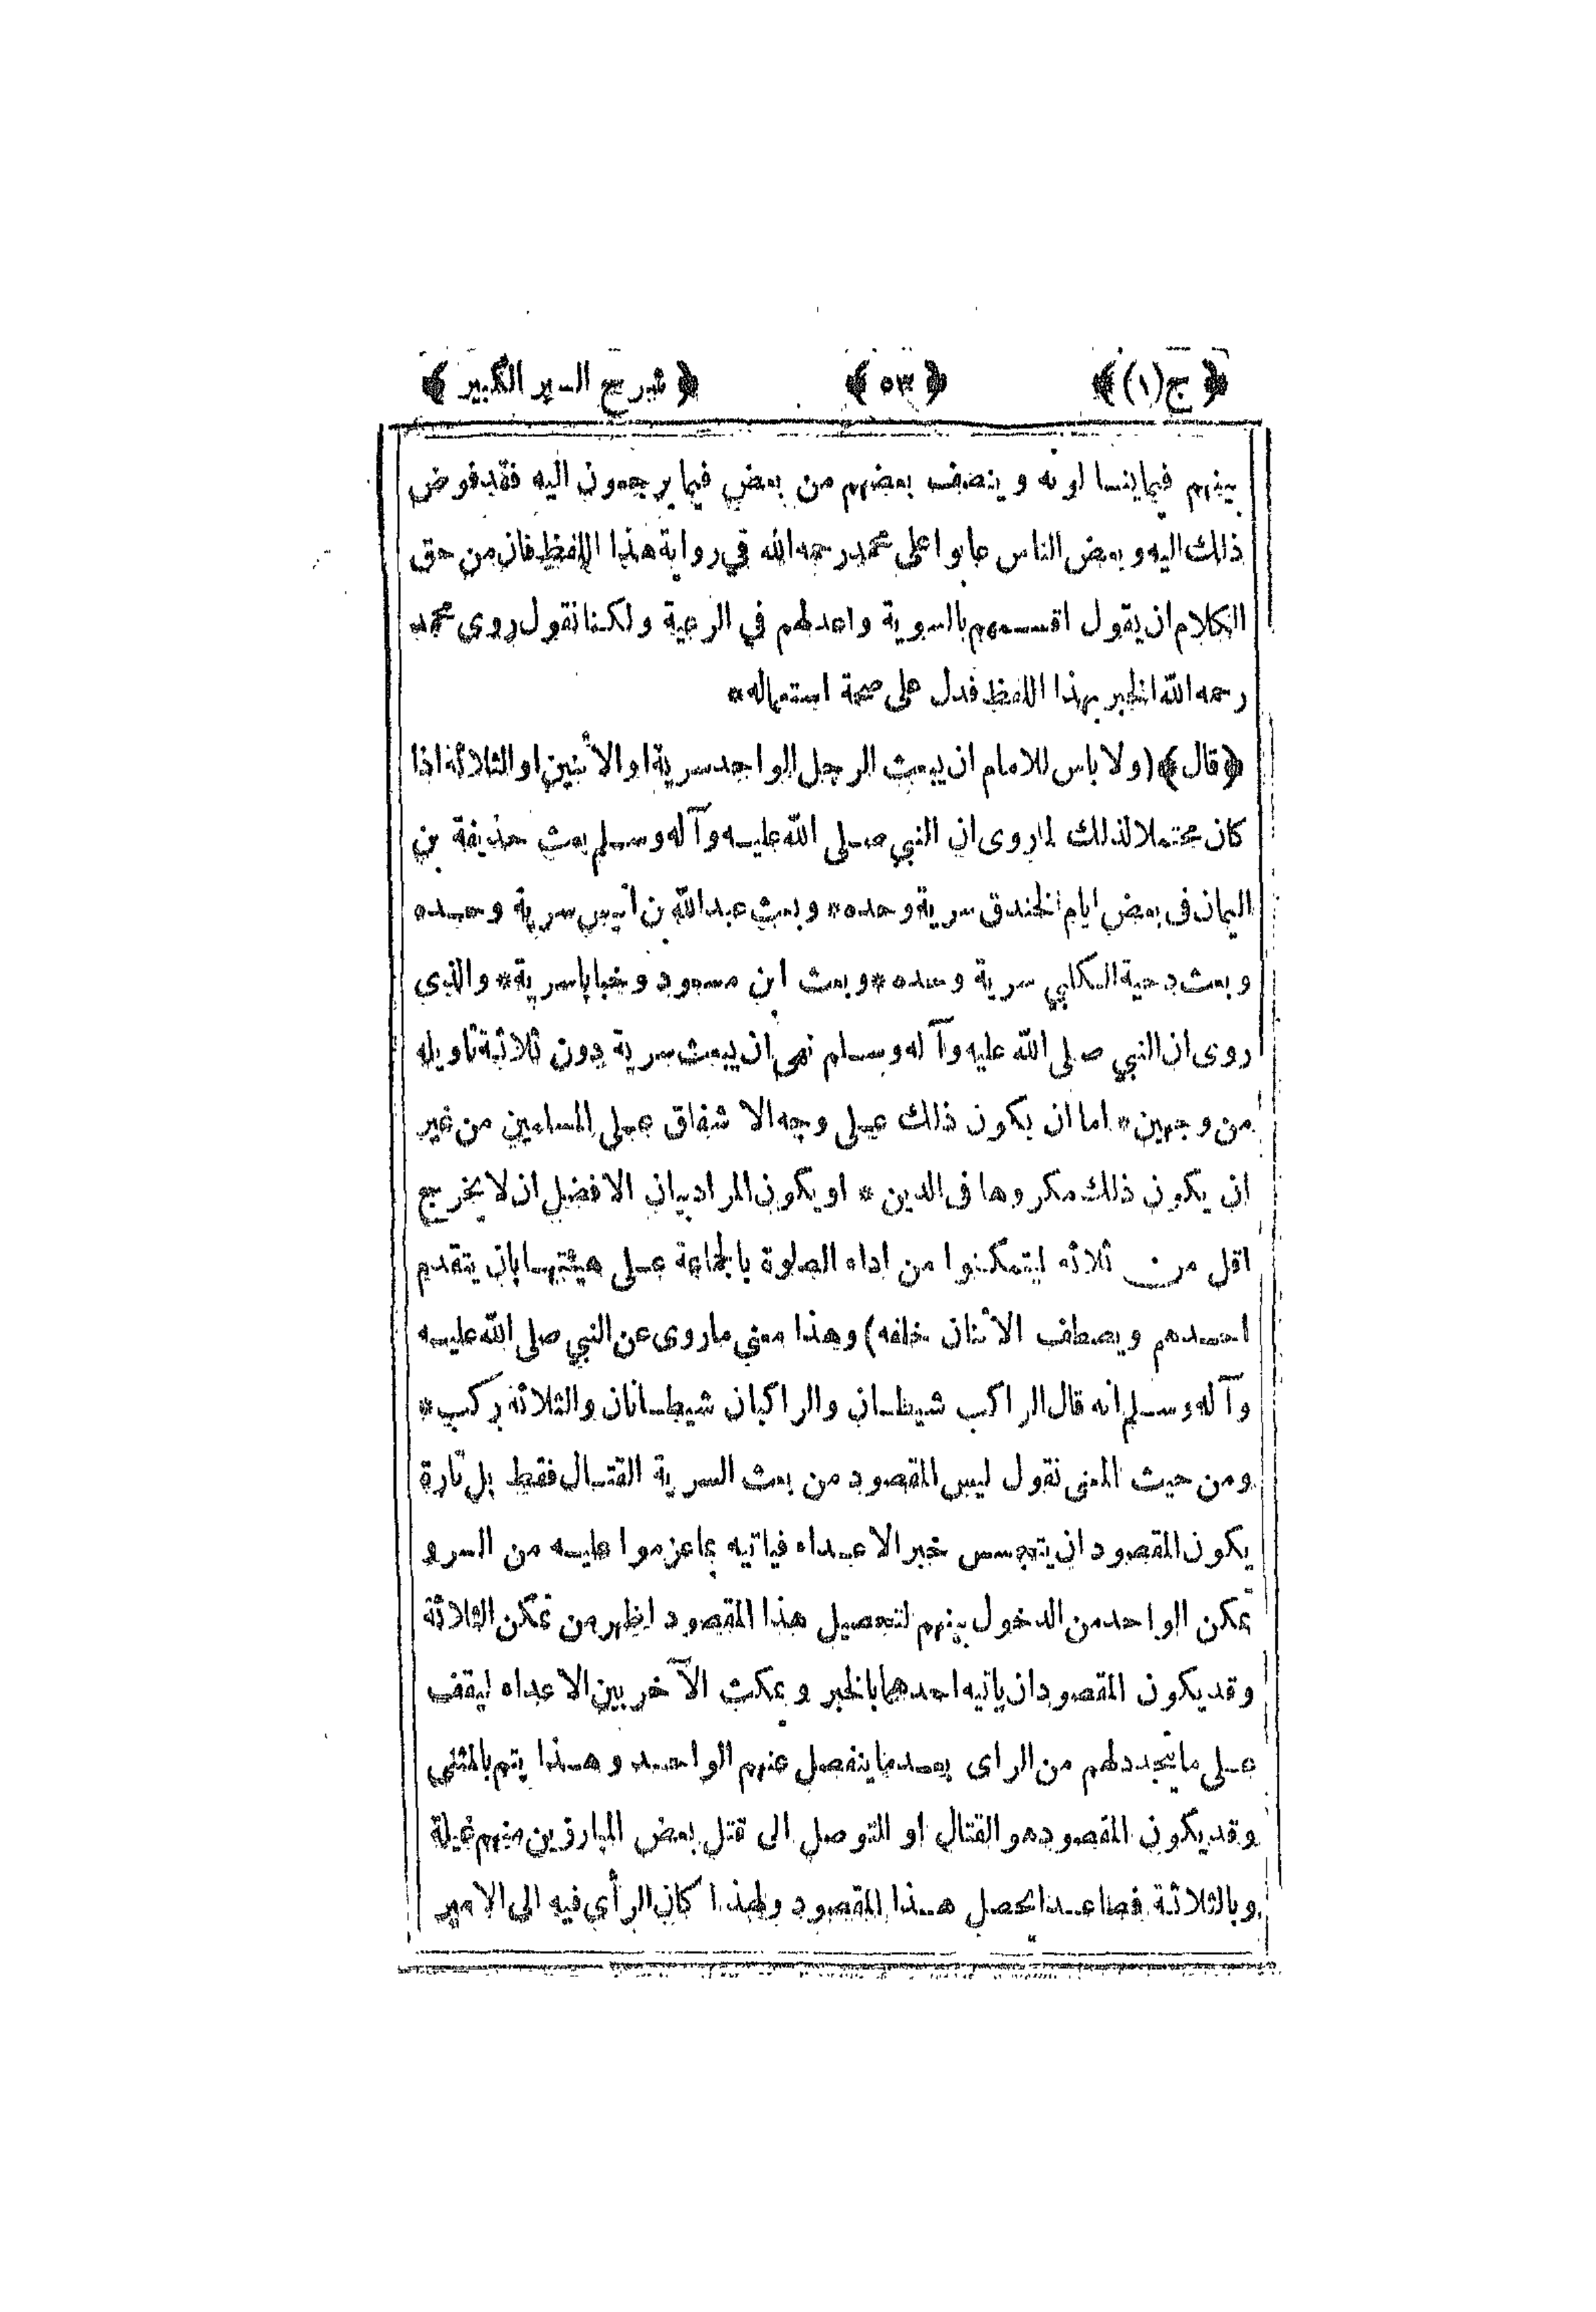 ﴿ ج(١) ﴾ ﴿ ٥٣ ﴾ ﴿ شرح السير الكبير ﴾
بينهم فيما ينسا لونه و ينصف بعضهم من بعض فيما يرجعون اليه فقد فوض
ذلك اليه و بعض الناس عابوا على محمد رحمه الله في رواية هذا اللفظ فان من حق
الكلام ان يقول اقسمهم بالسوية واعدلهم في الرعية ولكنا نقول روى محمد
رحمه الله الخبر بهذا اللفظ فدل على صحة استعماله *
﴿ قال ﴾ (ولا باس للامام ان يبعث الرجل الواحد سرية او الاثنين او الثلاثة اذا
كان محتملا لذلك لما روى ان النبي صلى الله عليه وآله وسلم بعث حذيفة بن
اليمان فى بعض ايام الخندق سرية وحده * وبعث عبد الله بن انيس سرية وحده
وبعث دحية الكلبي سرية وحده * وبعث ابن مسعود وخبابا سرية * والذى
روى ان النبي صلى الله عليه وآله وسلم نهى ان يبعث سرية دون ثلاثة تاويله
من وجهين * اما ان يكون ذلك على وجه الا شفاق على المسلمين من غير
ان يكون ذلك مكروها فى الدين * او يكون المراد بيان الافضل ان لا يخرج
اقل من ثلاثه ليتمكنوا من اداء الصلوة بالجماعة على هيئتها بان يتقدم
احدهم ويصطف الاثنان خلفه) وهذا معنى ما روى عن النبي صلى الله عليه
وآله وسلم انه قال الراكب شيطان والراكبان شيطانان والثلاثة ركب *
ومن حيث المعنى نقول ليس المقصود من بعث السرية القتال فقط بل تارة
يكون المقصود ان يتجسس خبر الاعداء فياتيه بما عزموا عليه من السر و
تمكن الواحد من الدخول بينهم لتحصيل هذا المقصود اظهر من تمكن الثلاثة
وقد يكون المقصود ان ياتيه احدهما بالخبر ويمكث الآخر بين الاعداء ليقف
على ما يتجدد لهم من الراى بعد ما ينفصل عنهم الواحد وهذا يتم بالمثنى
وقد يكون المقصود هو القتال او التوصل الى قتل بعض المبارزين منهم غيلة
وبالثلاثة فصاعدا يحصل هذا المقصود ولهذا كان الرأي فيه الى الامير